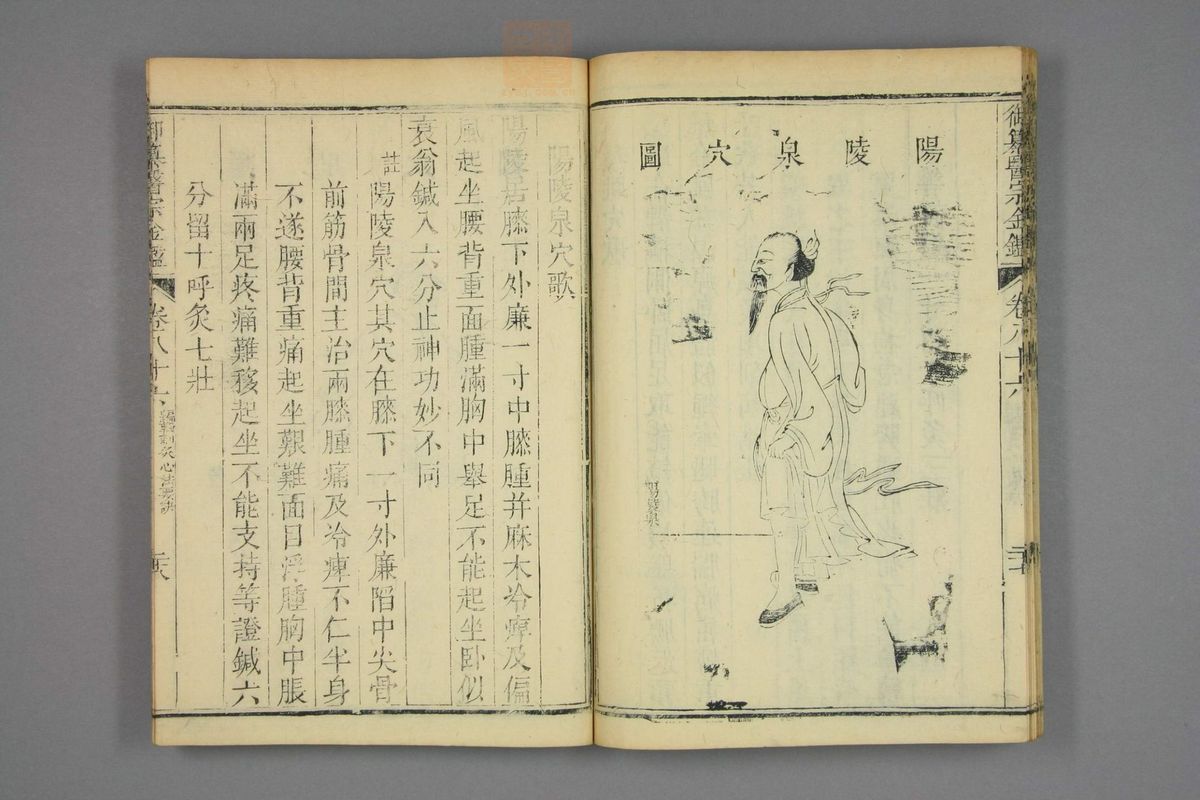 御纂醫宗金鑑
卷八十六
陽陵泉穴圖
陽陵泉
陽陵泉穴歌
陽陵居膝下外廉一寸中膝腫并麻木冷痺及偏
風起坐腰背重面腫滿胸中舉足不能起坐臥似
衰翁鍼入六分止神功妙不同
註陽陵泉穴其穴在膝下一寸外廉陷中尖骨
前筋骨間主治兩膝腫痛及冷痺不仁半身
不遂腰背重痛起坐艱難面目浮腫胸中脹
滿兩足疼痛難移起坐不能支持等證鍼六
分留十呼灸七壯
御纂醫宗金鑑
卷八十六
刺灸心法要訣